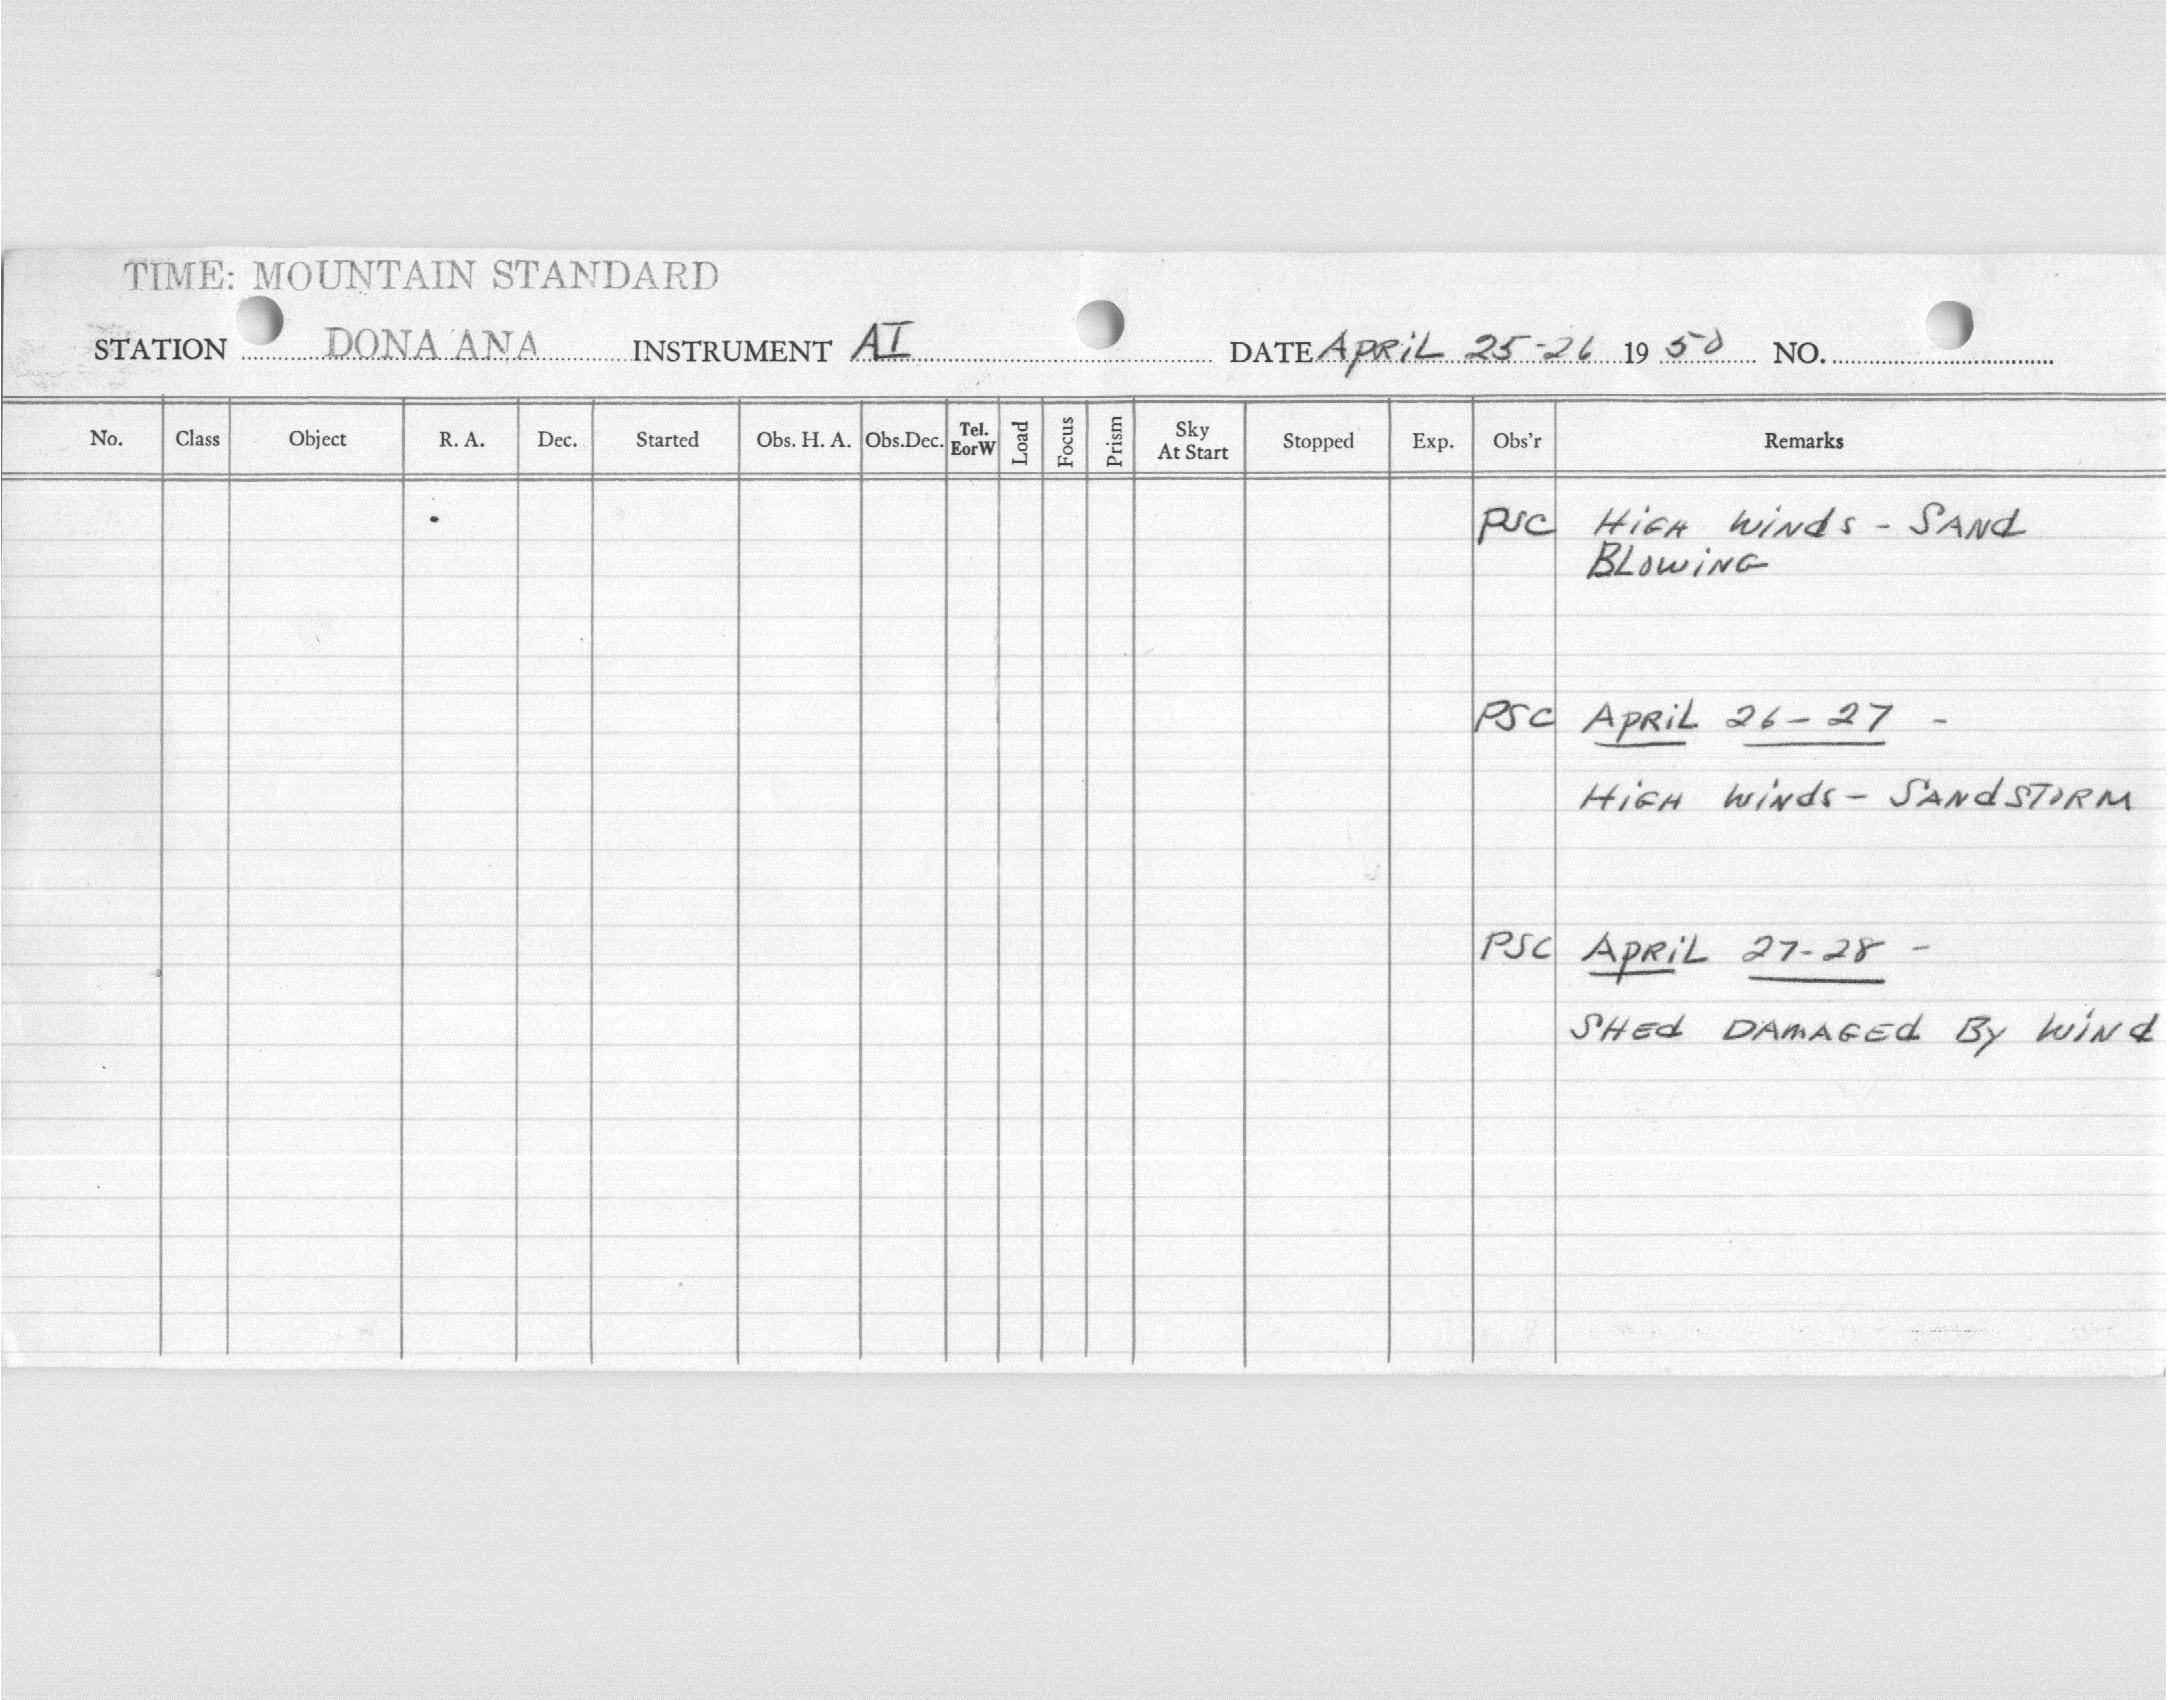 TIME: MOUNTAIN STANDARD
STATION DONA ANA INSTRUMENT AI DATE APRIL 25-26 1950 NO.
No. Class Object R. A. Dec. Started Obs. H. A. Obs.Dec. Tel. EorW Load Focus Prism Sky At Start Stopped Exp. Obs'r Remarks
PSC HIGH WINDS - SAND
BLOWING
PSC APRIL 26-27 -
HIGH WINDS - SANDSTORM
PSC APRIL 27-28 -
SHED DAMAGED BY WIND